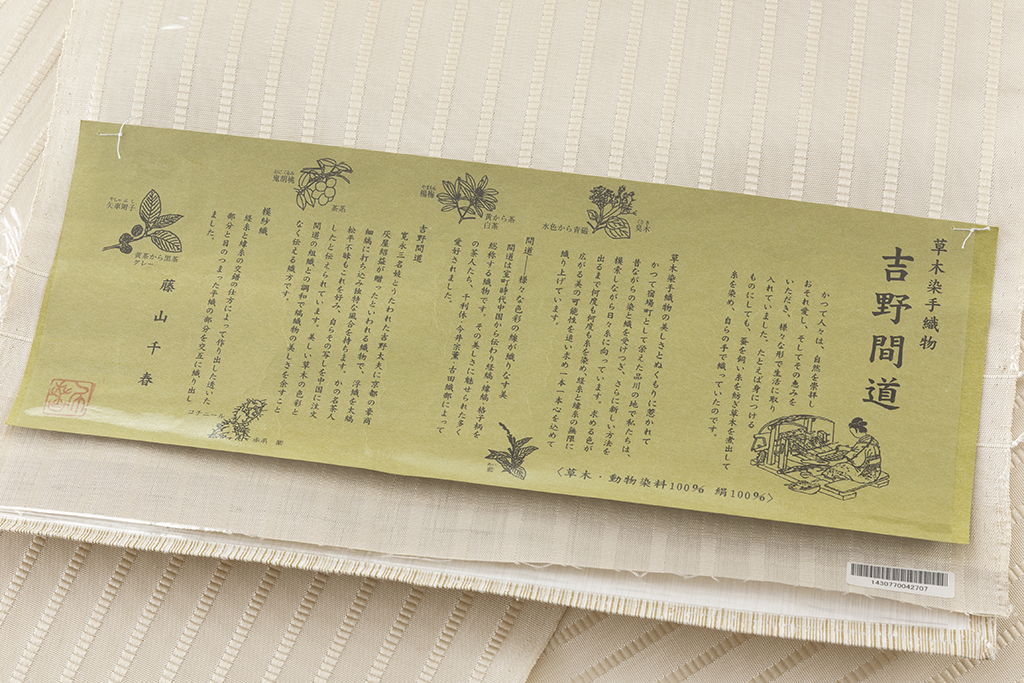 草木染手織物
吉野間道
かつて人々は、自然を崇拝し
おそれ愛し、そしてその恵みを
いただき、様々な形で生活に取り
入れていました。たとえば身につける
ものにしても、蚕を飼い糸を紡ぎ草木を煮出して
糸を染め、自らの手で織っていたのです。
草木染手織物の美しさとぬくもりに惹かれて
かつて宿場町として栄えた品川の地で私たちは、
昔ながらの染と織を受けつぎ、さらに新しい方法を
模索しながら日々糸に向っています。求める色が
出るまで何度も何度も糸を染め、経糸と緯糸の無限に
広がる美の可能性を追い求め一本一本心を込めて
織り上げています。
間道――様々な色彩の縞が織りなす美
間道は室町時代中国から伝わり経縞、緯縞、格子柄を
総称する織物です。その美しさに魅せられた多く
の茶人たち、千利休、今井宗薫、古田織部によって
愛好されました。
吉野間道
寛永三名妓とうたわれた吉野太夫に京都の豪商
灰屋紹益が贈ったといわれる織物で、浮織を太縞
細縞に打ち込み独特な風合を持ちます。かの名茶人
松平不昧もこれを好み、自らその写しを中国に注文
したと伝えられています。美しい草木の色彩と
間道の組織との調和で縞織物の美しさを余すこと
なく伝える織方です。
模紗織
経糸と緯糸の交錯の仕方によって作り出した透いた
部分と目のつまった平織の部分を交互に織り出し
ました。
藤山千春
水色から青磁
臭木
くさぎ
やまもも
楊梅
黄から茶
白茶
おにぐるみ
鬼胡桃
茶系
やしゃぶし
矢車附子
黄茶から黒茶
グレー
コチニール
赤系 紫
藍
〈草木・動物染料100% 絹100%〉
1430770042707